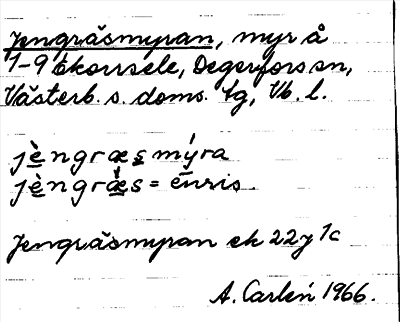 Jengräsmyran, myr å
1-9 Ekorrsele, Degerfors sn,
Västerb. s. doms. lg, Vb. l.
jèngræs mýra
jèngræ̀s = ēnris
Jengräsmyran ek 22J 1c
A. Carlén 1966.